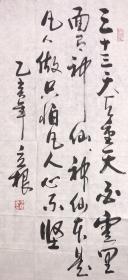 三十三天天重天白雲里
面有神仙神仙本是
凡人做只怕凡人心不坚
乙亥年 立根